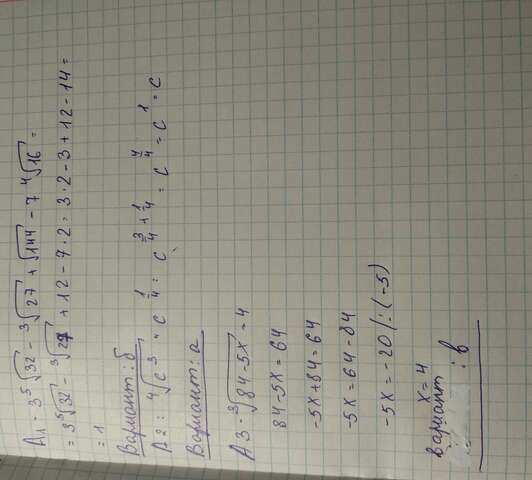 A1. 3⁵√32 - ³√27 + √144 - 7 ⁴√16 =
= 3⁵√32 - ³√27 + 12 - 7·2 = 3·2 - 3 + 12 - 14 =
= 1
Вариант: б
A2: ⁴√c³ * c^(1/4) = c^(3/4 + 1/4) = c^(4/4) = c¹ = c
Вариант: а
A3 - ³√84-5x = 4
84 - 5x = 64
-5x + 84 = 64
-5x = 64 - 84
-5x = -20 / : (-5)
x = 4
Вариант : в